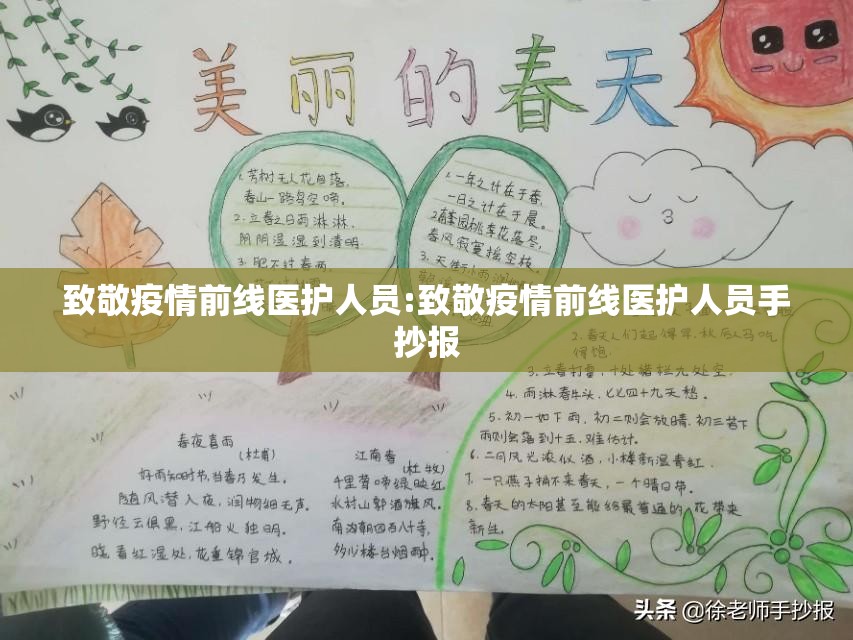 美丽的春天
1.芳树无人花自落,
春山一路鸟空啼。
2.立春之日雨淋淋,
阴阴湿湿到清明.
3.肥不过春雨,
1.一年之计在于春,
一日之计在于晨。
春风寂寞摇空枝。
3.天街小雨润
致敬疫情前线医护人员:致敬疫情前线医护人员手
抄报
3.立春打雷,十处猪栏九处空.
4.雨淋春牛头,七七四十九天愁.
5.初一如下雨,初二则会放晴.初三若下
雨则会落到十五,难估计.
6.二月风光浓似酒,小楼新湿青红.
7.一只燕子捎不来春天,一个晴日带.
8.春天的太阳甚至能给最普通的花带来
新生.
春夜喜雨
(杜甫)
好雨知时节,当春乃发生.
随风潜入夜,润物细无声.
野径云俱黑,江船火独明.
晓看红湿处,花重锦官城.
江南春
(杜牧)
千里莺啼绿映红
水村山郭酒旗风.
南朝四百八十寺,
多少楼台烟雨中.
头条 @徐老师手抄报